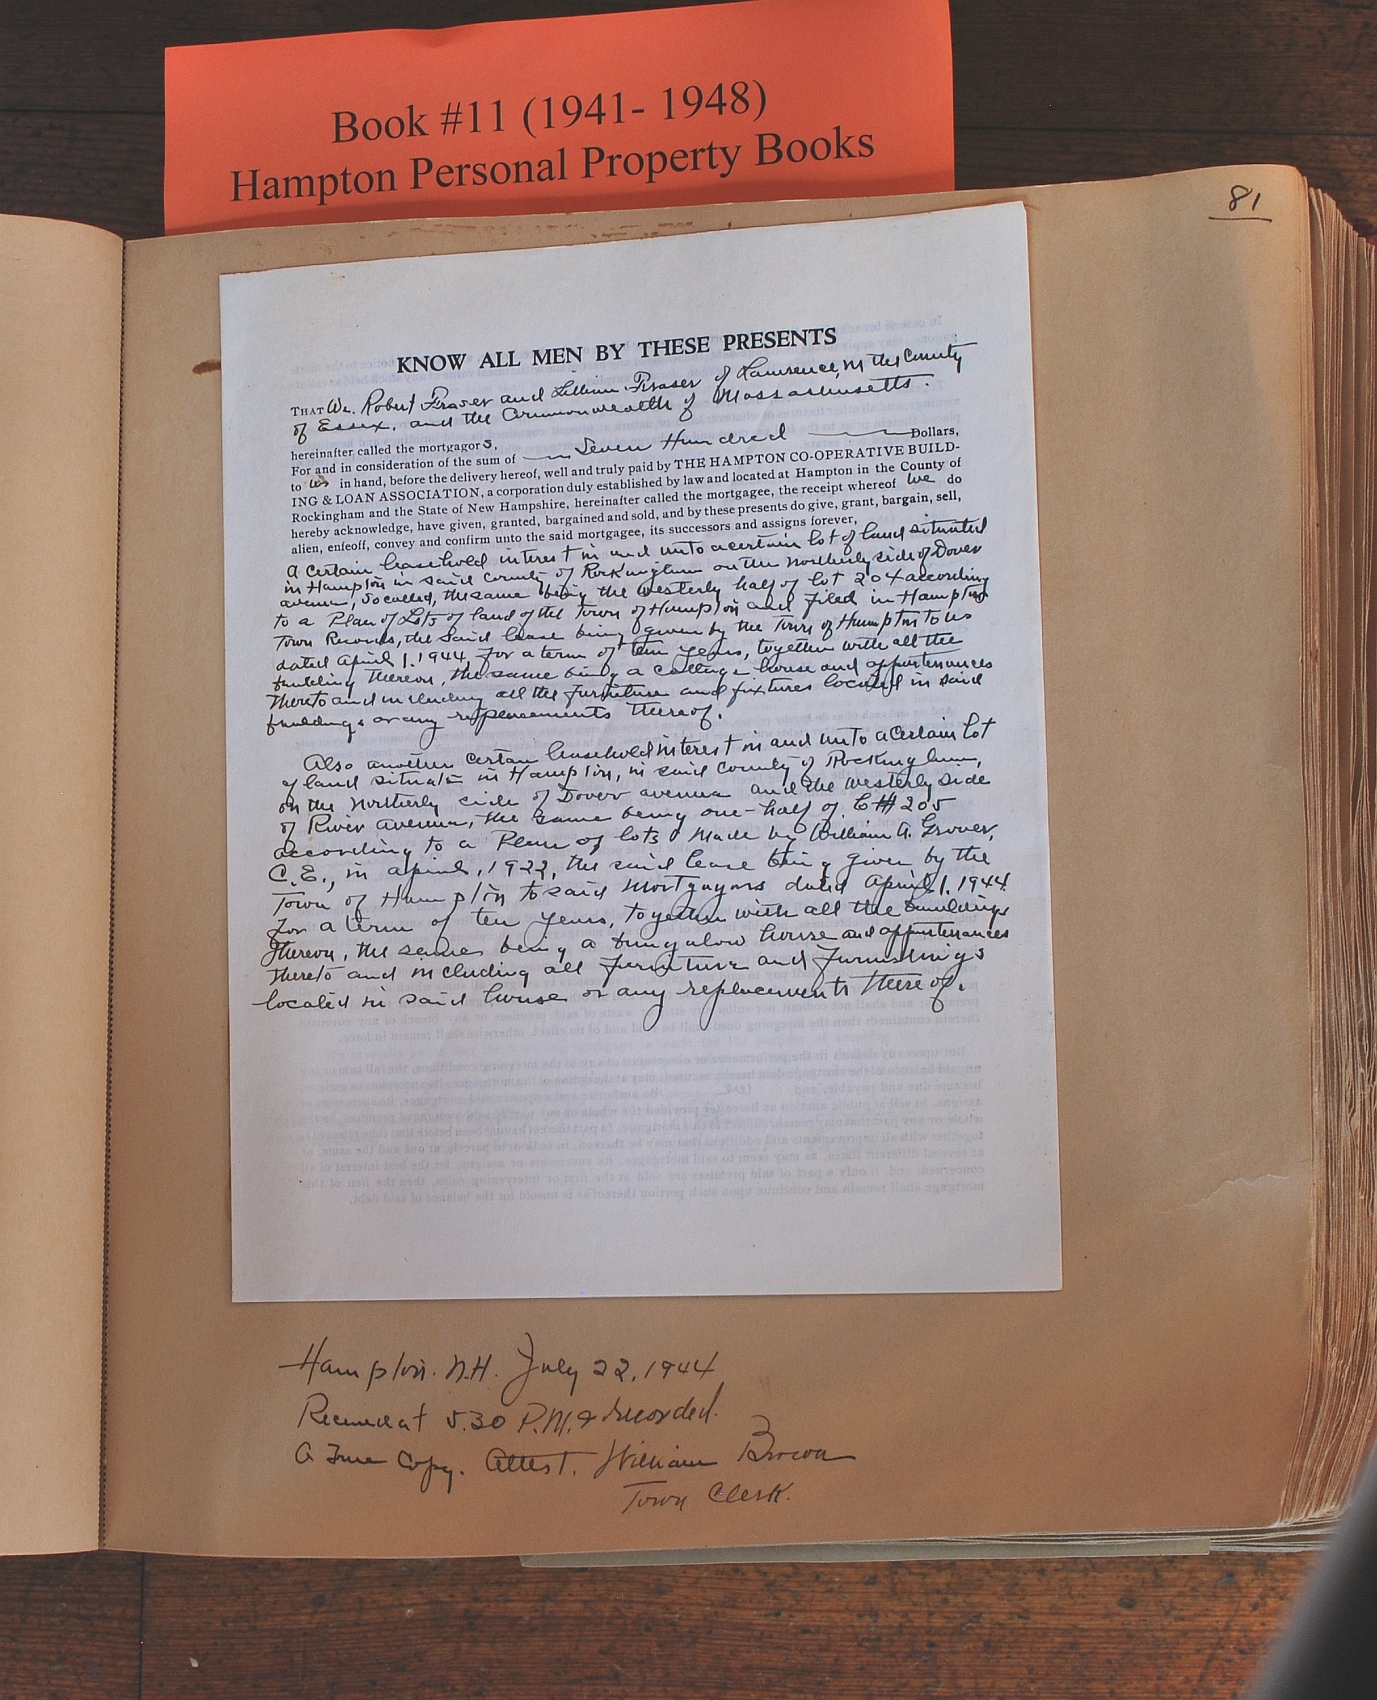 Book #11 (1941- 1948)
Hampton Personal Property Books
81
KNOW ALL MEN BY THESE PRESENTS
THAT We, Robert Fraser and Lillian Fraser of Lawrence, in the County
of Essex, and the Commonwealth of Massachusetts.
hereinafter called the mortgagors,
For and in consideration of the sum of Seven Hundred Dollars,
to us in hand, before the delivery hereof, well and truly paid by THE HAMPTON CO-OPERATIVE BUILD-
ING & LOAN ASSOCIATION, a corporation duly established by law and located at Hampton in the County of
Rockingham and the State of New Hampshire, hereinafter called the mortgagee, the receipt whereof we do
hereby acknowledge, have given, granted, bargained and sold, and by these presents do give, grant, bargain, sell,
alien, enfeoff, convey and confirm unto the said mortgagee, its successors and assigns forever,
a certain leasehold interest in and unto a certain lot of land situated
in Hampton in said County of Rockingham on the northerly side of Dover
avenue, so called, the same being the westerly half of lot 204 according
to a Plan of Lots of land of the Town of Hampton and filed in Hampton
Town Records, the said lease being given by the Town of Hampton to us
dated April 1, 1944 for a term of ten years, together with all the
building thereon, the same being a cottage house and appurtenances
thereto and including all the furniture and fixtures located in said
buildings or any replacements thereof.
Also another certain leasehold interest in and unto a certain lot
of land situate in Hampton, in said County of Rockingham,
on the northerly side of Dover avenue and the westerly side
of River avenue, the same being one-half of L#205
according to a Plan of lots made by William A. Grover,
C.E., in April, 1922, the said lease being given by the
Town of Hampton to said mortgagors dated April 1, 1944
for a term of ten years, together with all the buildings
thereon, the same being a bungalow house and appurtenances
thereto and including all furniture and furnishings
located in said house or any replacements thereof.
Hampton. N.H. July 22, 1944
Received at 5.30 P.M. & recorded.
A True Copy. Attest. William Brown
Town Clerk.